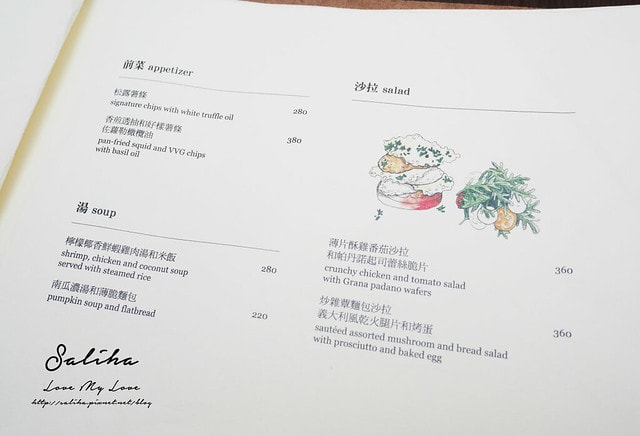 前菜 appetizer
松露薯條
signature chips with white truffle oil 280
香煎透抽和好樣薯條
佐羅勒橄欖油 380
pan-fried squid and VVG chips
with basil oil
湯 soup
檸檬椰香鮮蝦雞肉湯和米飯
shrimp, chicken and coconut soup 280
served with steamed rice
南瓜濃湯和薄脆麵包
pumpkin soup and flatbread 220
沙拉 salad
薄片酥雞番茄沙拉
和帕丹諾起司蕾絲脆片 360
crunchy chicken and tomato salad
with Grana padano wafers
炒雜蕈麵包沙拉
義大利風乾火腿片和烤蛋 360
sautéed assorted mushroom and bread salad
with prosciutto and baked egg
Saliha
Love My Love
http://saliha.pixnet.net/blog